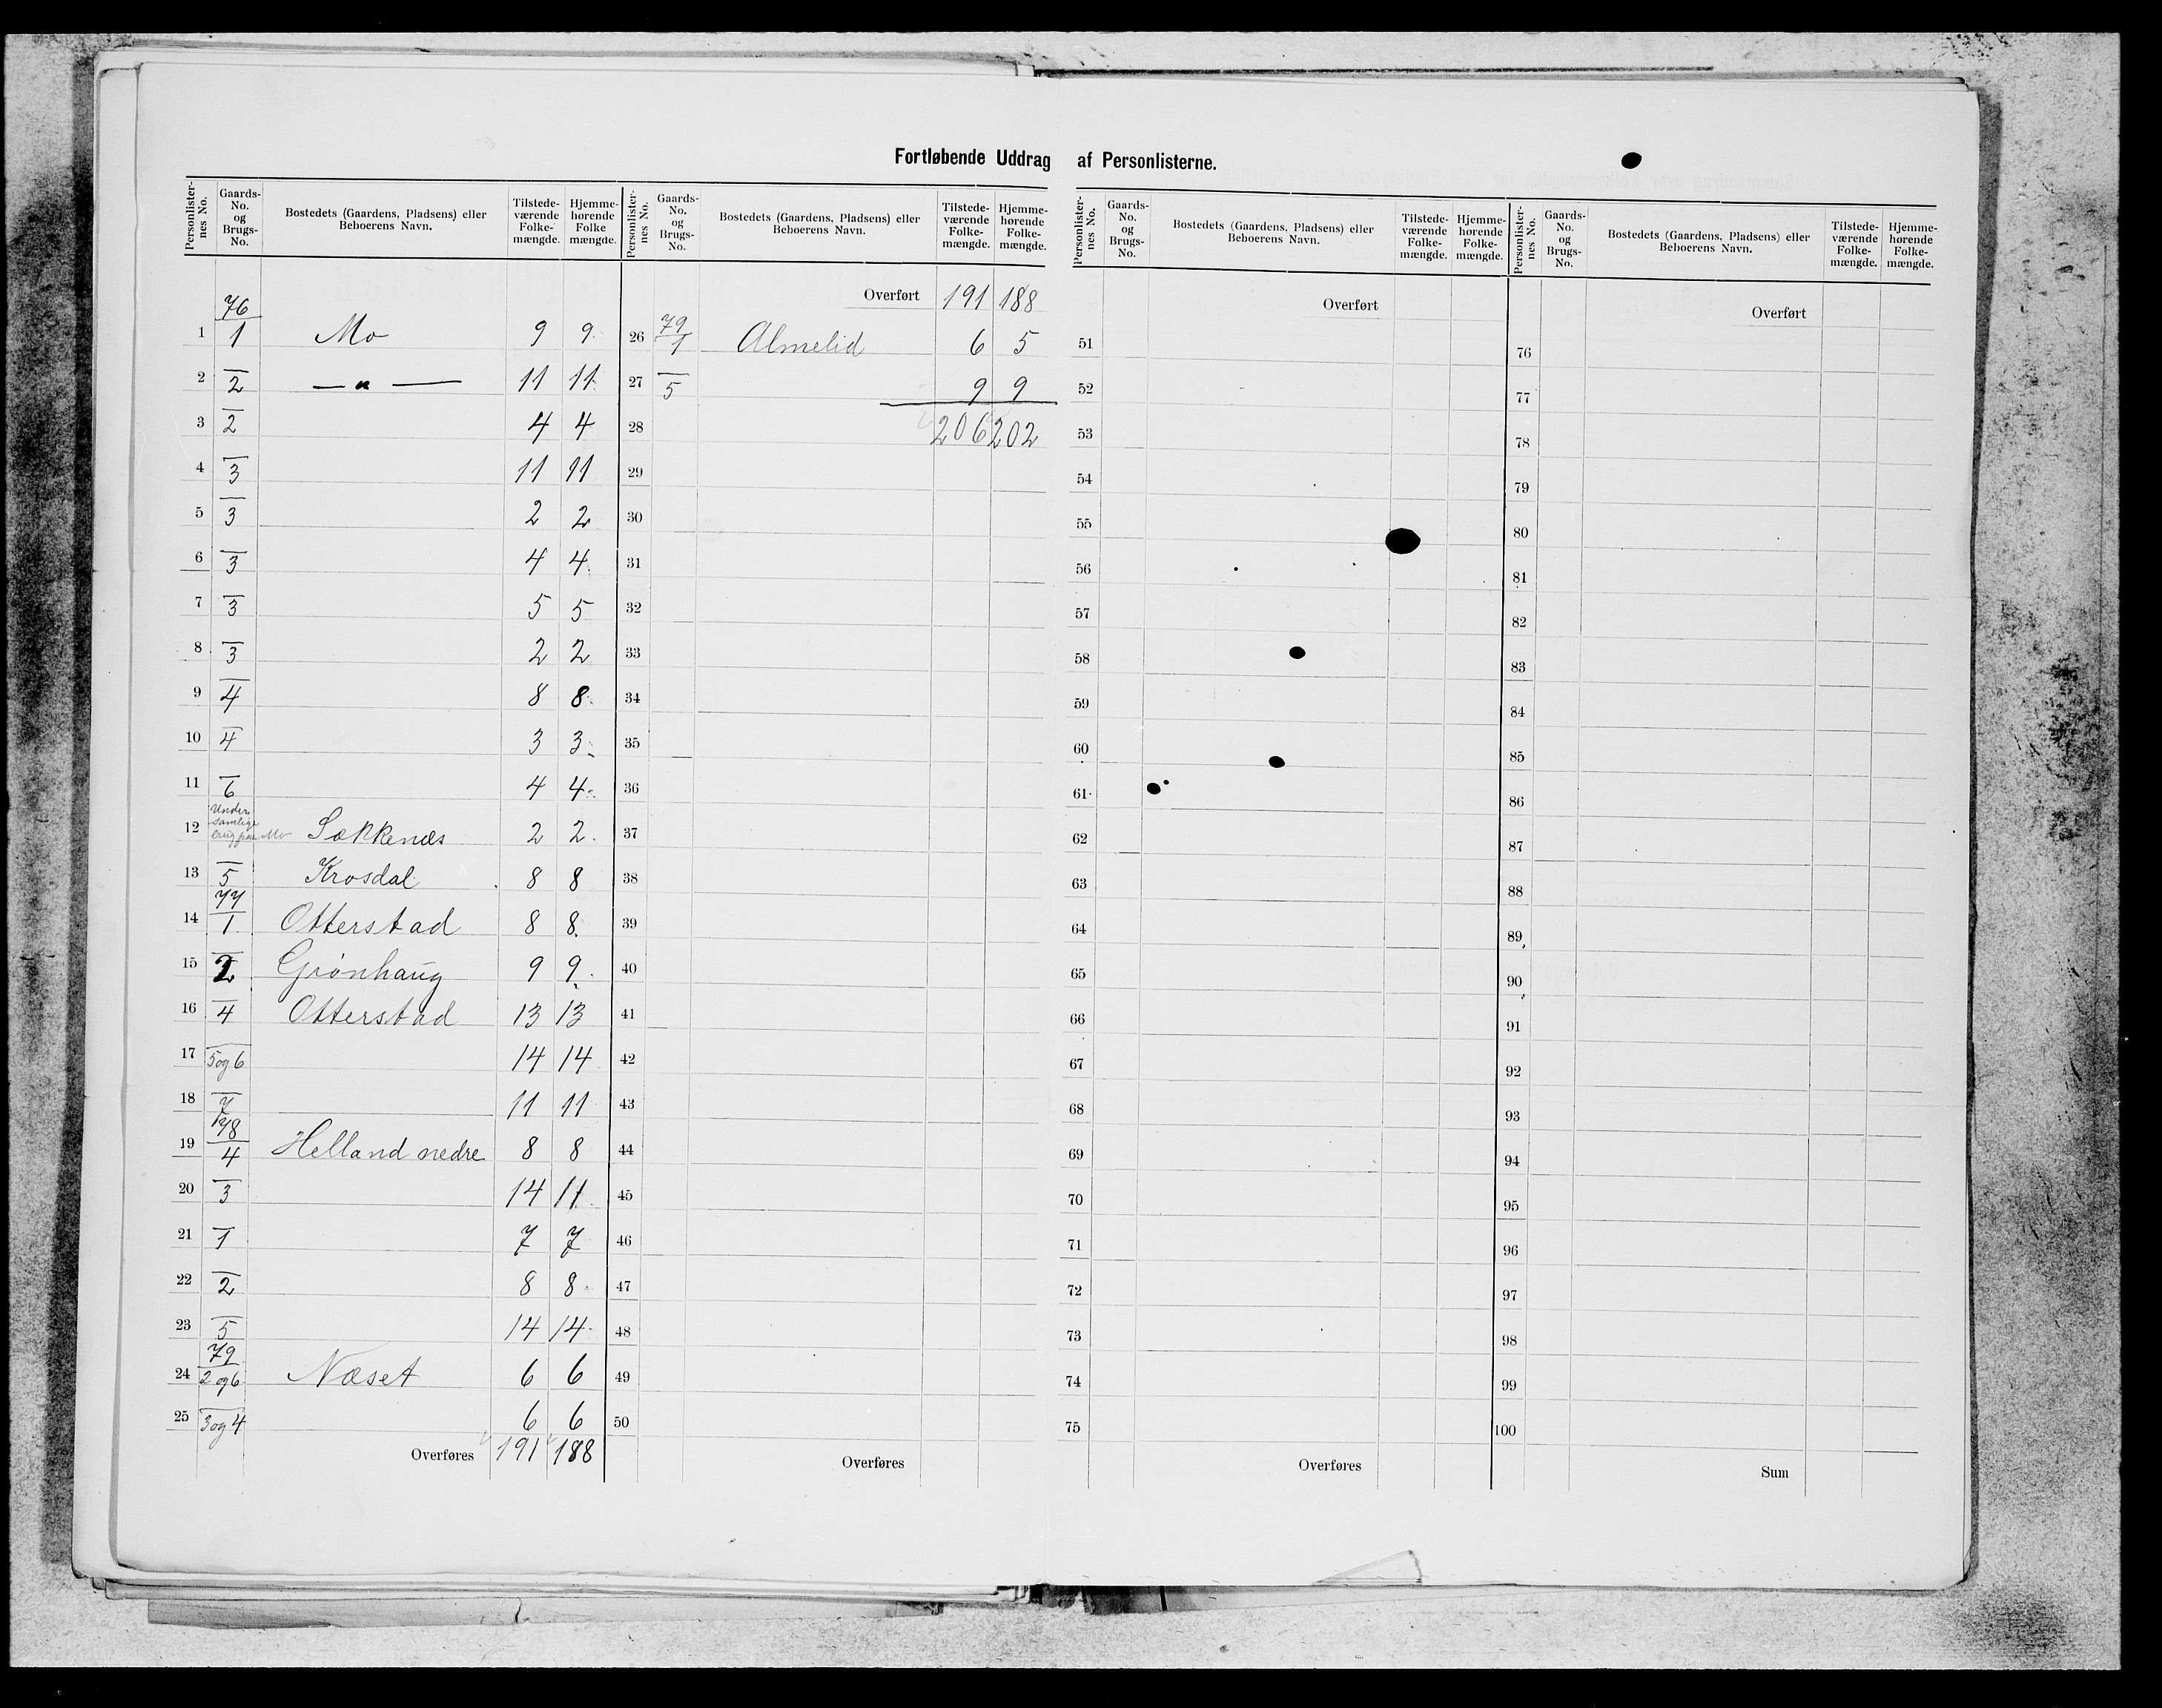 Fortløbende Uddrag af Personlisterne.
Personlister-nes No. | Gaards-No. og Brugs-No. | Bostedets (Gaardens, Pladsens) eller Beboerens Navn. | Tilstede-værende Folke-mængde. | Hjemme-hørende Folke mængde.
1 | 76/1 | Mo | 9 | 9
2 | 2 | — " — | 11 | 11
3 | 2 | | 4 | 4
4 | 3 | | 11 | 11
5 | 3 | | 2 | 2
6 | 3 | | 4 | 4
7 | 3 | | 5 | 5
8 | 3 | | 2 | 2
9 | 4 | | 8 | 8
10 | 4 | | 3 | 3
11 | 6 | | 4 | 4
12 | Under samlige brug paa Mo | Sækkenæs | 2 | 2
13 | 5 | Krosdal | 8 | 8
14 | 77/1 | Otterstad | 8 | 8
15 | 2 | Grønhaug | 9 | 9
16 | 4 | Otterstad | 13 | 13
17 | 5 og 6 | | 14 | 14
18 | 7 | | 11 | 11
19 | 78/4 | Helland nedre | 8 | 8
20 | 3 | | 14 | 11
21 | 1 | | 7 | 7
22 | 2 | | 8 | 8
23 | 5 | | 14 | 14
24 | 79/2 og 6 | Næset | 6 | 6
25 | 3 og 4 | | 6 | 6
Overføres | 191 | 188
Personlister-nes No. | Gaards-No. og Brugs-No. | Bostedets (Gaardens, Pladsens) eller Beboerens Navn. | Tilstede-værende Folke-mængde. | Hjemme-hørende Folke-mængde.
Overført | 191 | 188
26 | 79/1 | Almelid | 6 | 5
27 | 5 | | 9 | 9
28 | | | 206 | 202
29
30
31
32
33
34
35
36
37
38
39
40
41
42
43
44
45
46
47
48
49
50
Overføres
Personlister-nes No. | Gaards-No. og Brugs-No. | Bostedets (Gaardens, Pladsens) eller Beboerens Navn. | Tilstede-værende Folke-mængde. | Hjemme-hørende Folke-mængde.
Overført
51
52
53
54
55
56
57
58
59
60
61
62
63
64
65
66
67
68
69
70
71
72
73
74
75
Overføres
Personlister-nes No. | Gaards-No. og Brugs-No. | Bostedets (Gaardens, Pladsens) eller Beboerens Navn. | Tilstede-værende Folke-mængde. | Hjemme-hørende Folke-mængde.
Overført
76
77
78
79
80
81
82
83
84
85
86
87
88
89
90
91
92
93
94
95
96
97
98
99
100
Sum